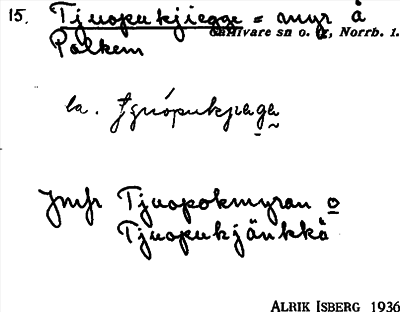 15. Tjuopukjiegge = myr å
Gällivare sn o. lg, Norrb. l.
Palkem
la.
Jmfr Tjuopokmyran o
Tjuopukjänkkä
ALRIK ISBERG 1936